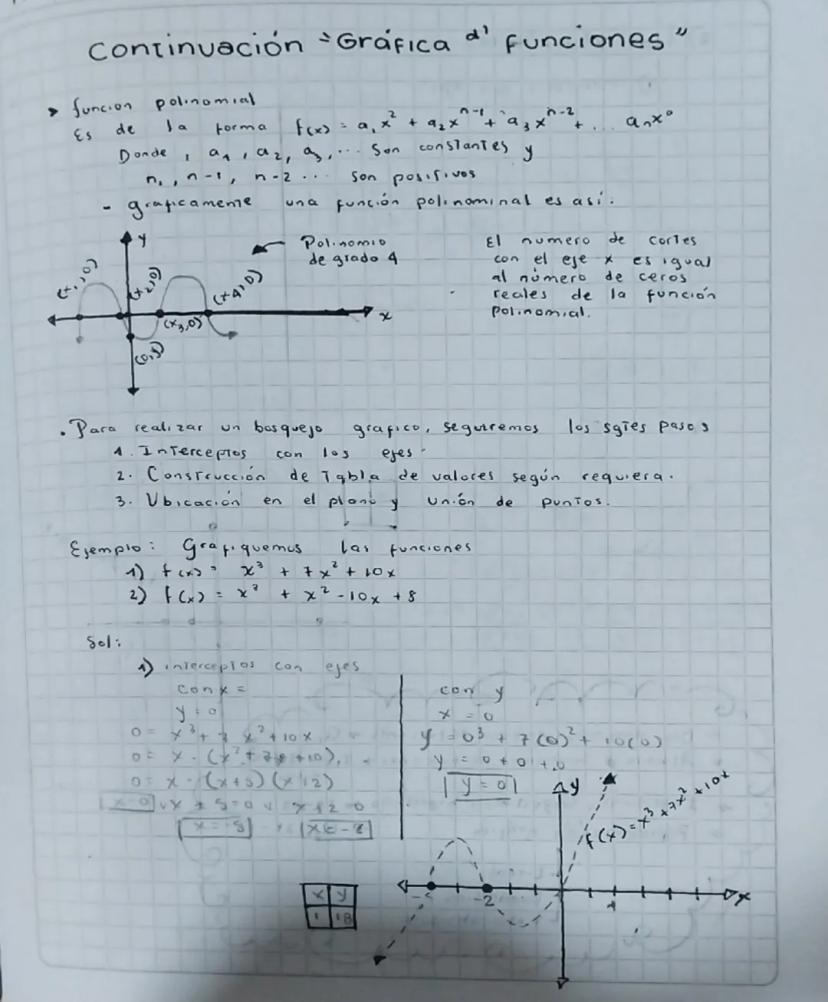 Continuación "Gráfica d' funciones"
> funcion polinomial
Es de la forma f(x) = a₁x² + a₂xⁿ⁻¹ + a₃xⁿ⁻² + ... aₙx⁰
Donde, a₁, a₂, a₃, ... son constantes y
n, n-1, n-2 ... son positivos
- graficamente una función polinominal es así:
y
Polinomio
de grado 4
(x₁,0)
(x₂,0)
(x₃,0)
(x₄,0)
x
El numero de cortes
con el eje x es igual
al número de ceros
reales de la función
polinomial.
. Para realizar un bosquejo grafico, seguiremos los sgtes pasos
1. Interceptos con los ejes.
2. Construcción de Tabla de valores según requiera.
3. Ubicación en el plano y unión de puntos.
Ejemplo: Grafiquemos las funciones
1) f(x) = x³ + 7x² + 10x
2) f(x) = x³ + x² - 10x + 8
Sol:
1) interceptos con ejes
con x =
y = 0
0 = x³ + 7x² + 10x
0 = x · (x² + 7x + 10)
0 = x · (x+5)(x+2)
x=0 v x+5=0 v x+2=0
x=-5 x=-2
con y
x = 0
y = 0³ + 7(0)² + 10(0)
y = 0 + 0 + 0
y = 0
x y
1 18
y
f(x) = x³ + 7x² + 10x
-5 -2 1 x